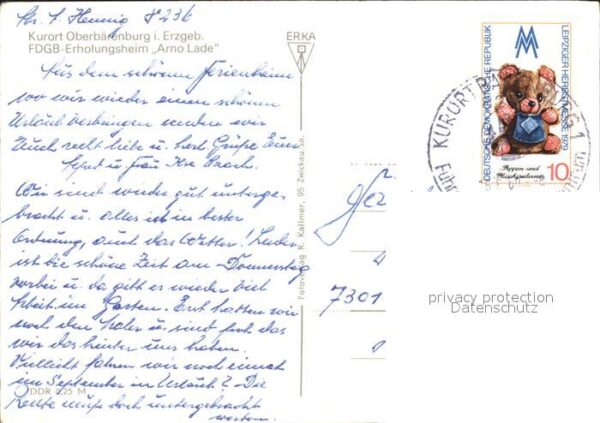 Kurort Oberbärenburg i. Erzgeb.
FDGB-Erholungsheim „Arno Lade"
Aus dem schönen Ferienheim
wo wir wieder einen schönen
Urlaub verbringen senden wir
Euch recht liebe u. herzl. Grüße Eure
u. Frau
Wir sind wieder gut unterge-
bracht u. alles ist in bester
Ordnung, auch das Wetter! Leider
ist die schöne Zeit am Donnerstag
vorbei u. da gibt es wieder viel
Arbeit im Garten. Erst hatten wir
noch den Maler u. sind froh das
wir das hinter uns haben.
Vielleicht fahren wir noch einmal
im September in Urlaub? Die
Leute muß doch untergebracht
werden.
DDR 0,25 M
ERKA
Fotoverlag R. Kallmer, 95 Zwickau Sa.
7301
DEUTSCHE DEMOKRATISCHE REPUBLIK
LEIPZIGER HERBSTMESSE 1979
Puppen und
Plüschspielwaren
10
KURORT
privacy protection
Datenschutz